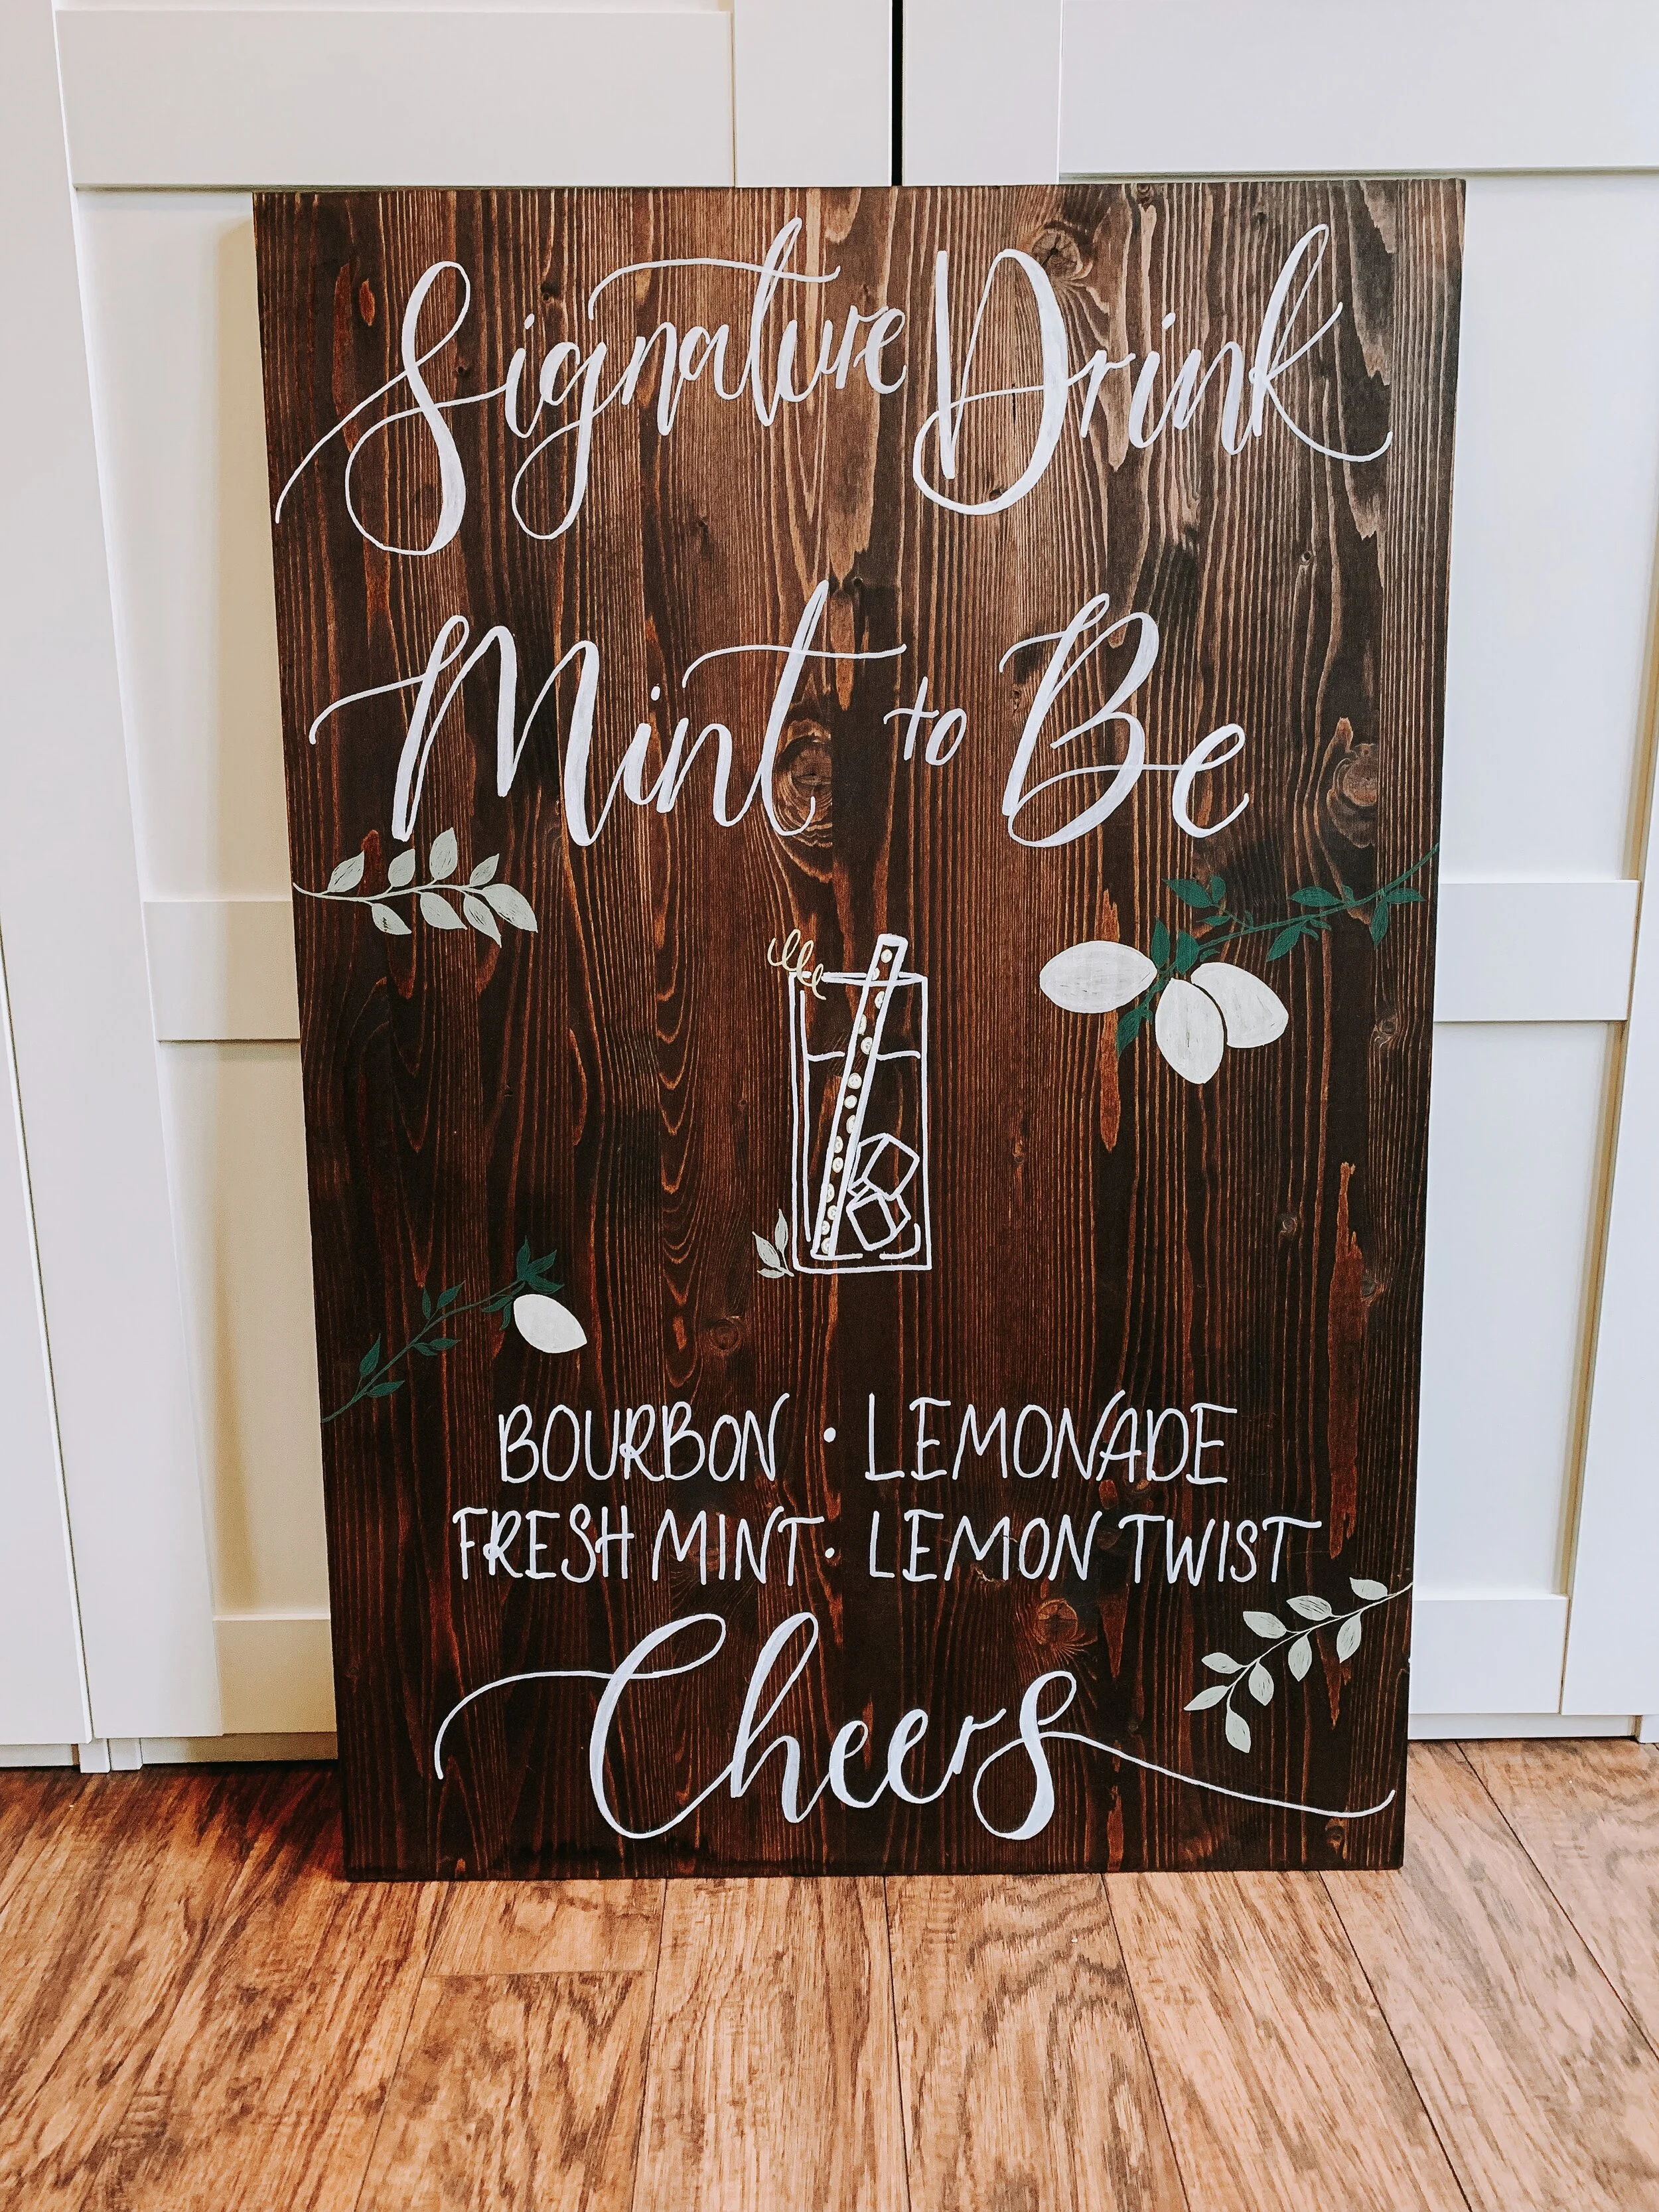 Signature Drink
Mint to Be
BOURBON · LEMONADE
FRESH MINT · LEMON TWIST
Cheers